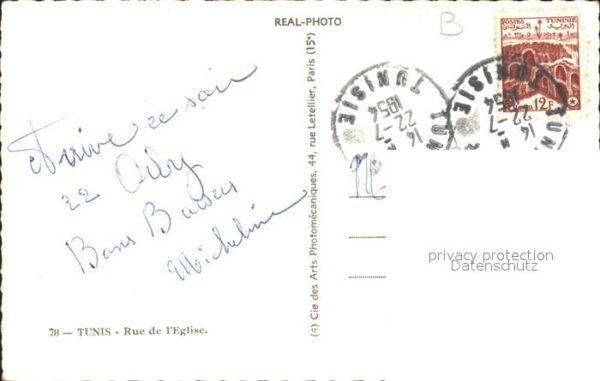 REAL-PHOTO
B
Arrive ce soir
22 Orly
Bons Baisers
Micheline
78 — TUNIS - Rue de l'Eglise.
(4) Cie des Arts Photomécaniques, 44, rue Letellier, Paris (15e)
POSTES TUNISIE
12F
TUNIS
14 H
22-7
1954
TUNISIE
TUNIS
14 H
22-7
1954
TUNISIE
M
privacy protection
Datenschutz